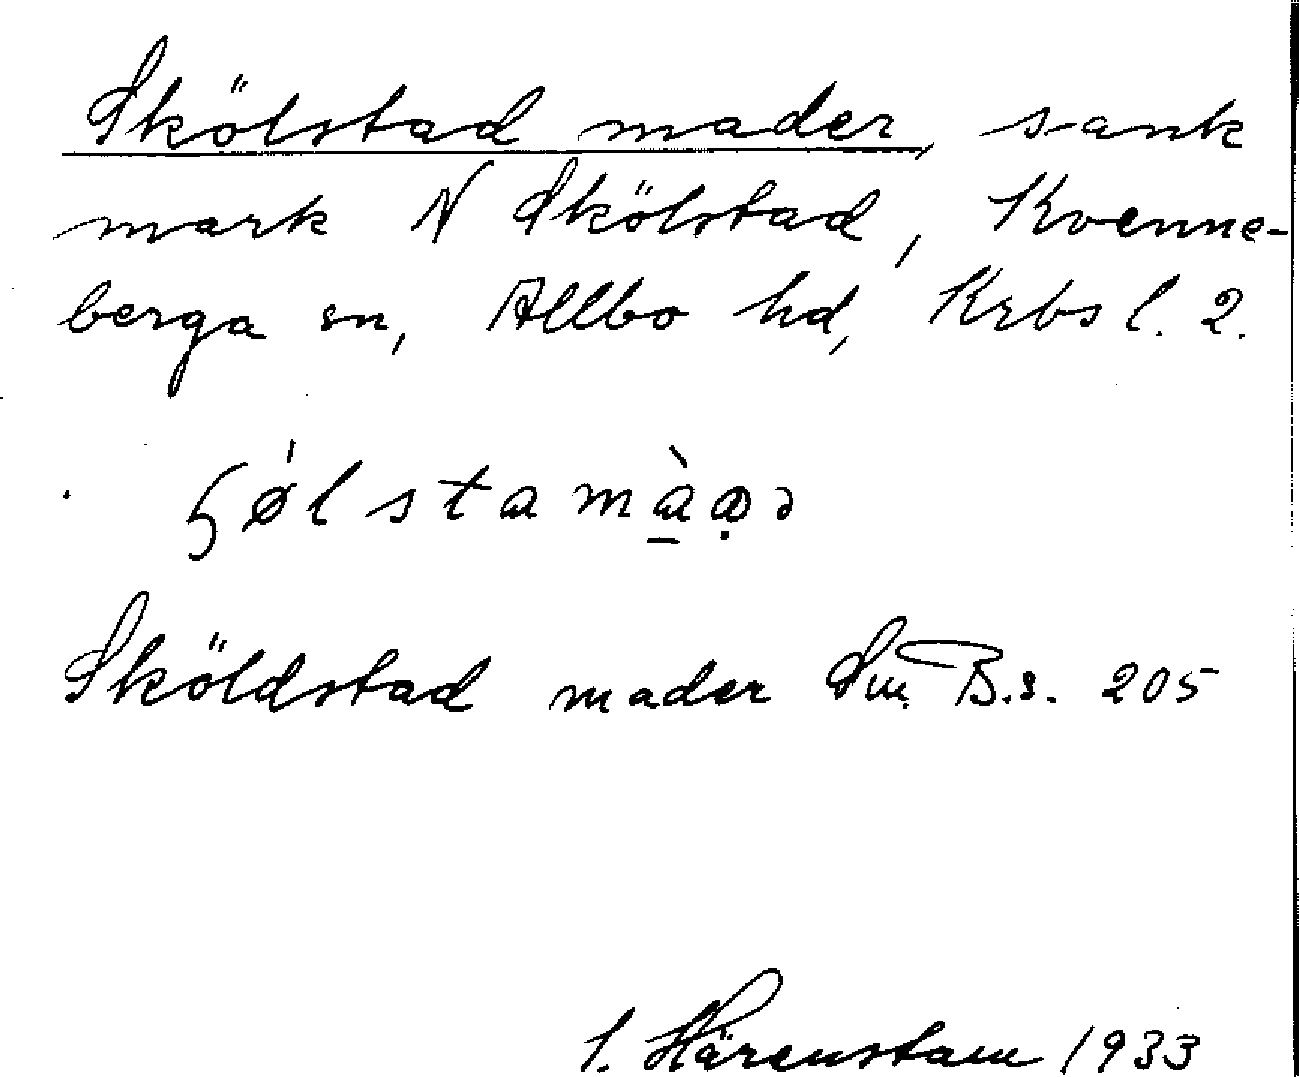 Skölstad mader, sank
mark N Skölstad, Kvenne-
berga sn, Allbo hd, Krbs l. 2.
Sköldstad mader Sm. B.s. 205
S. Härenstam 1933